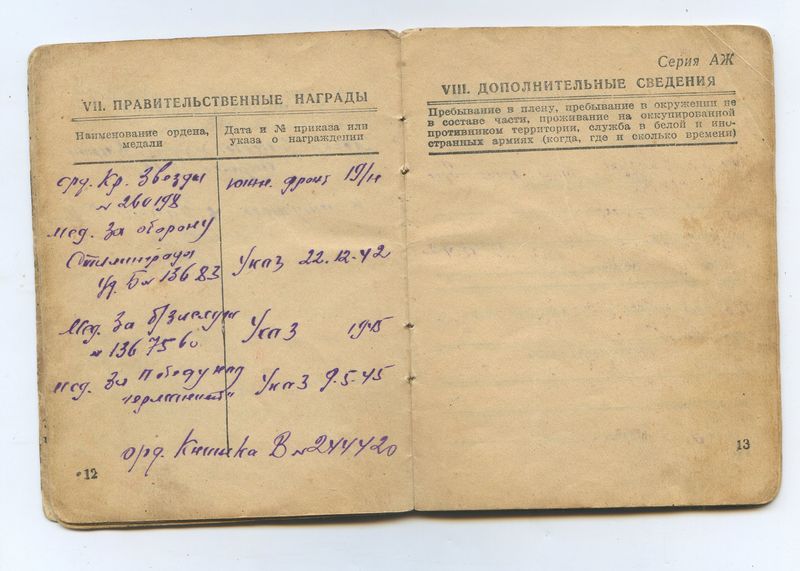 VII. ПРАВИТЕЛЬСТВЕННЫЕ НАГРАДЫ
Наименование ордена, медали
Дата и № приказа или указа о награждении
орд. Кр. Звезды
№ 260198
южн. фронт 19/II
мед. За оборону
Сталинграда
Уд. Б № 13683
Указ 22.12.42
Мед. За
№ 136
Указ 1945
мед. За победу над
германией"
Указ 9.5.45
орд. Книжка В № 244420
12
Серия АЖ
VIII. ДОПОЛНИТЕЛЬНЫЕ СВЕДЕНИЯ
Пребывание в плену, пребывание в окружении не
в составе части, проживание на оккупированной
противником территории, служба в белой и ино-
странных армиях (когда, где и сколько времени)
13